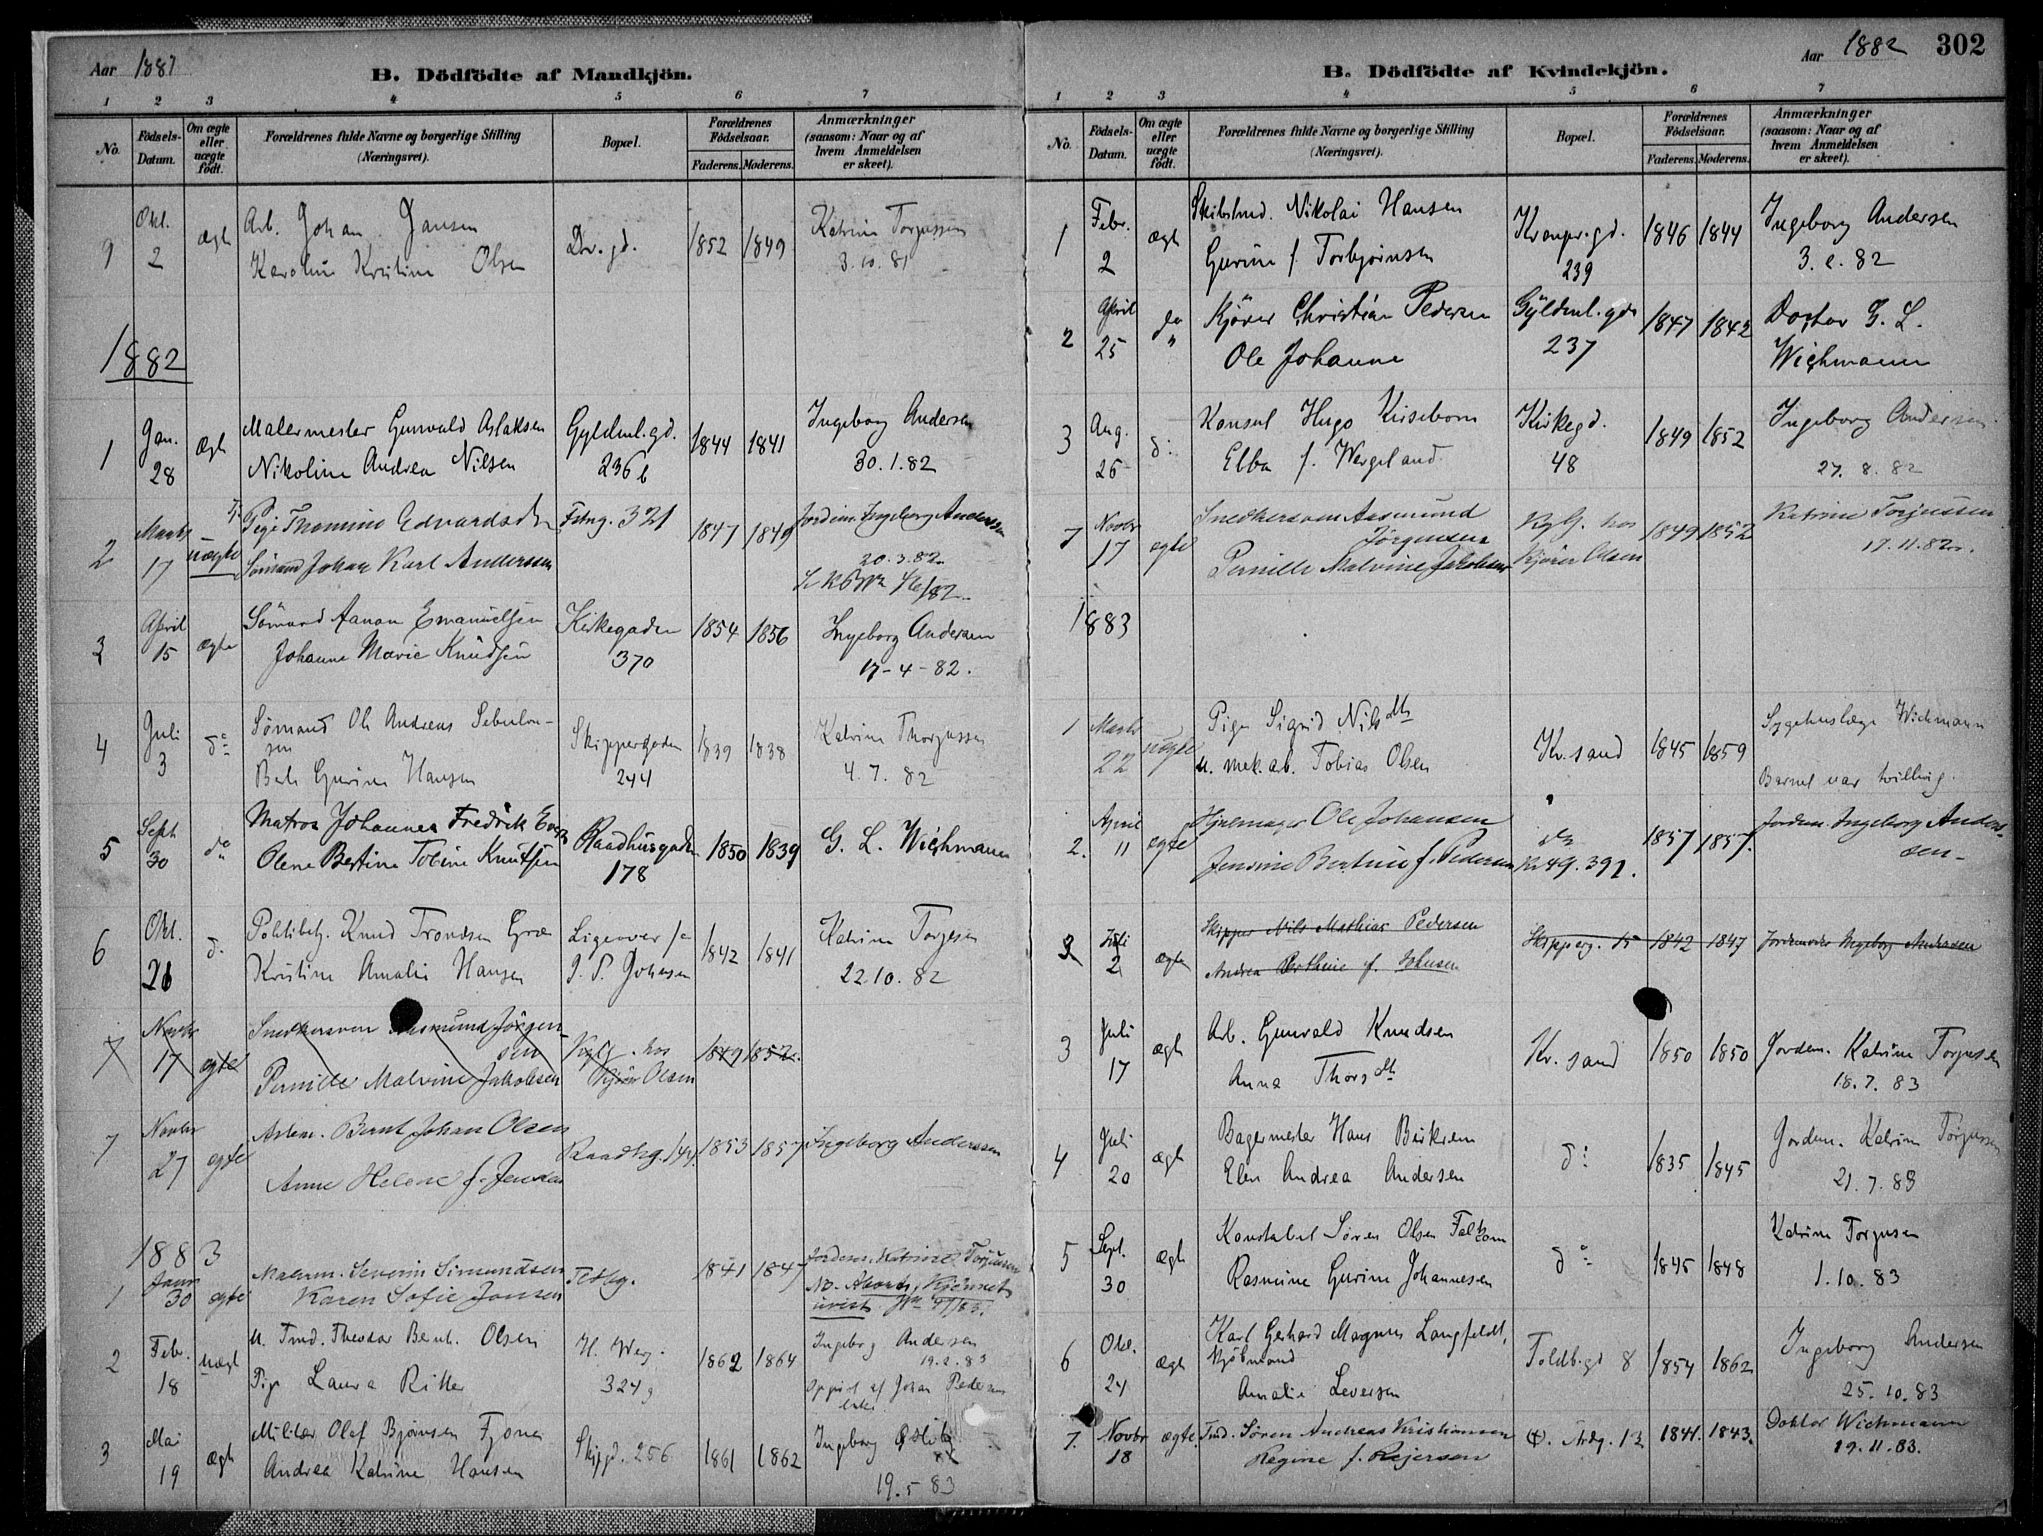 Aar 1881
B. Dödfödte af Mandkjön.
1 2 3 4 5 6 7
No. Födsels-Datum. Om ægte eller uægte födt. Forældrenes fulde Navne og borgerlige Stilling (Næringsvei). Bopæl. Forældrenes Födselsaar. Faderens. Moderens. Anmærkninger (saasom: Naar og af hvem Anmeldelsen er skeet).
9 Okt. 2 ægte Arb. Johan Jansen Dr. gd. 1852 1849 Katrine Torjussen
Karoline Kristine Olsen 3.10.81
1882
1 Jan. 28 ægte Malermester Gunvald Aslaksen Gyldenl. gd. 236 b 1844 1841 Ingeborg Andersen
Nikoline Andrea Nilsen 30.1.82
2 Marts 17 uægte Pige Thomine Edvardsdtr Fstng. 321 1847 1849 Jordem. Ingeborg Andersen
Sömand Johan Karl Anderssen 20.3.82
3 April 15 ægte Sömand Aanon Emanuelsen Kirkegaden 370 1854 1856 Ingeborg Andersen
Johanne Marie Knudsen 17-4-82.
4 Juli 3 do Sømand Ole Andreas Sebulonsen Skippergaden 244 1839 1838 Katrine Thorjussen
Berte Gurine Hansen 4.7.82
5 Sept 30 do Matros Johannes Fredrik Raadhusgaden 178 1850 1839 G. L. Wichmann
Olene Bertine Tobine Knutsen
6 Okt. 21 do Politibetj. Knud Trondsen Ligeover for 1842 1841 Katrine Torjesen
Kristine Amalie Hansen J. P. Johnsen 22.10.82
7 Novbr 17 ægte Snedkersven Aasmund Jörgensen hos Kjører Olsen 1849 1852
Pernille Malvine Jakobsen
7 Novbr 27 ægte Arbm. Bernt Johan Olsen Raadhg. 144. 1853 1857 Ingeborg Anderssen
Anne Helene f. Jensen
1883
1 Janr 30 ægte Malerm. Severin Simundsen Festng. 1841 1847 Jordem. Katrine Torjusen
Karen Sofie Jonsen NB. Abort, Kjönnet uvist
2 Febr. 18 uægt U. Tmd. Theodor Bernh. Olsen H. Werg. 324 1862 1864 Ingeborg Andersen
Pige Laura Ritter 19.2.83
Opgivt af Johan Pedersen
3 Mai 19 ægte Militær Olaf Bjønsen Skipgd. 256 1861 1862 Ingeborg
Andrea Katrine Hansen 19.5 83
Aar 1882 302
B. Dödfödte af Kvindekjön.
1 2 3 4 5 6 7
No. Födsels-Datum. Om ægte eller uægte födt. Forældrenes fulde Navne og borgerlige Stilling (Næringsvei). Bopæl. Forældrenes Födselsaar. Faderens. Moderens. Anmærkninger (saasom: Naar og af hvem Anmeldelsen er skeet).
1 Febr. 2 ægte Skibstmd. Nikolai Hansen Kronpr. gd. 239 1846 1844 Ingeborg Andersen
Gurine f. Torbjørnsen 3.2.82
2 April 25 do Kjører Christian Pedersen Gyldenl. gdn 237 1847 1842 Doktor G. L.
Ole Johanne Wichmann
3 Aug. 26 do Konsul Hugo Kirsebom Kirkegd. 48 1849 1852 Ingeborg Andersen
Ebba f. Wergeland 27.8.82
7 Novbr 17 ægte Snedkersven Aasmund Jörgensen hos 1849 1852 Katrine Torjussen
Pernille Malvine Jakobsen Kjører Olsen 17.11.82.
1883
1 Marts 22 uægte Pige Sigrid Nilsdtr Kr.sand 1845 1859 Sygehuslæge Wichmann
U. mek. arb. Tobias Olsen Barnet var tvilling.
2. April 11 ægte Ole Johansen do 1857 1857. Jordem. Ingeborg Andersen
Jensine Bertine f. Pedersen 391.
2 Juli 2 ægte Skipper Nils Mathias Pedersen Skipperg. 15 1842 1847 Jordemoder Ingeborg Andersen
Andrea f. Johnsen
3 Juli 17 ægte Arb. Gunvald Knudsen Kr. sand 1850 1850 Jordem. Katrine Torjusen
Anna Thorsdtr 18.7.83
4 Juli 20 ægte Bagermester Hans Birkrem do 1835 1845 Jordem. Katrine Torjussen
Elen Andrea Andersen 21.7.83
5 Sept. 30 ægte Konstabel Søren Olsen do 1845 1848 Katrine Torjusen
Rasmine Gurine Johannesen 1.10.83
6 Okt. 24 ægte Karl Gerhard Magnus Langfeldt, Kjøbmand Toldb.gd 8 1854 1862 Ingeborg Andersen
Amalie Seversen 25.10.83
7. Novbr 18 ægte Tmd. Søren Andreas Kristiansen 12 1841. 1843. Doktor Wichmann
Regine f. Rejersen 19.11.83.